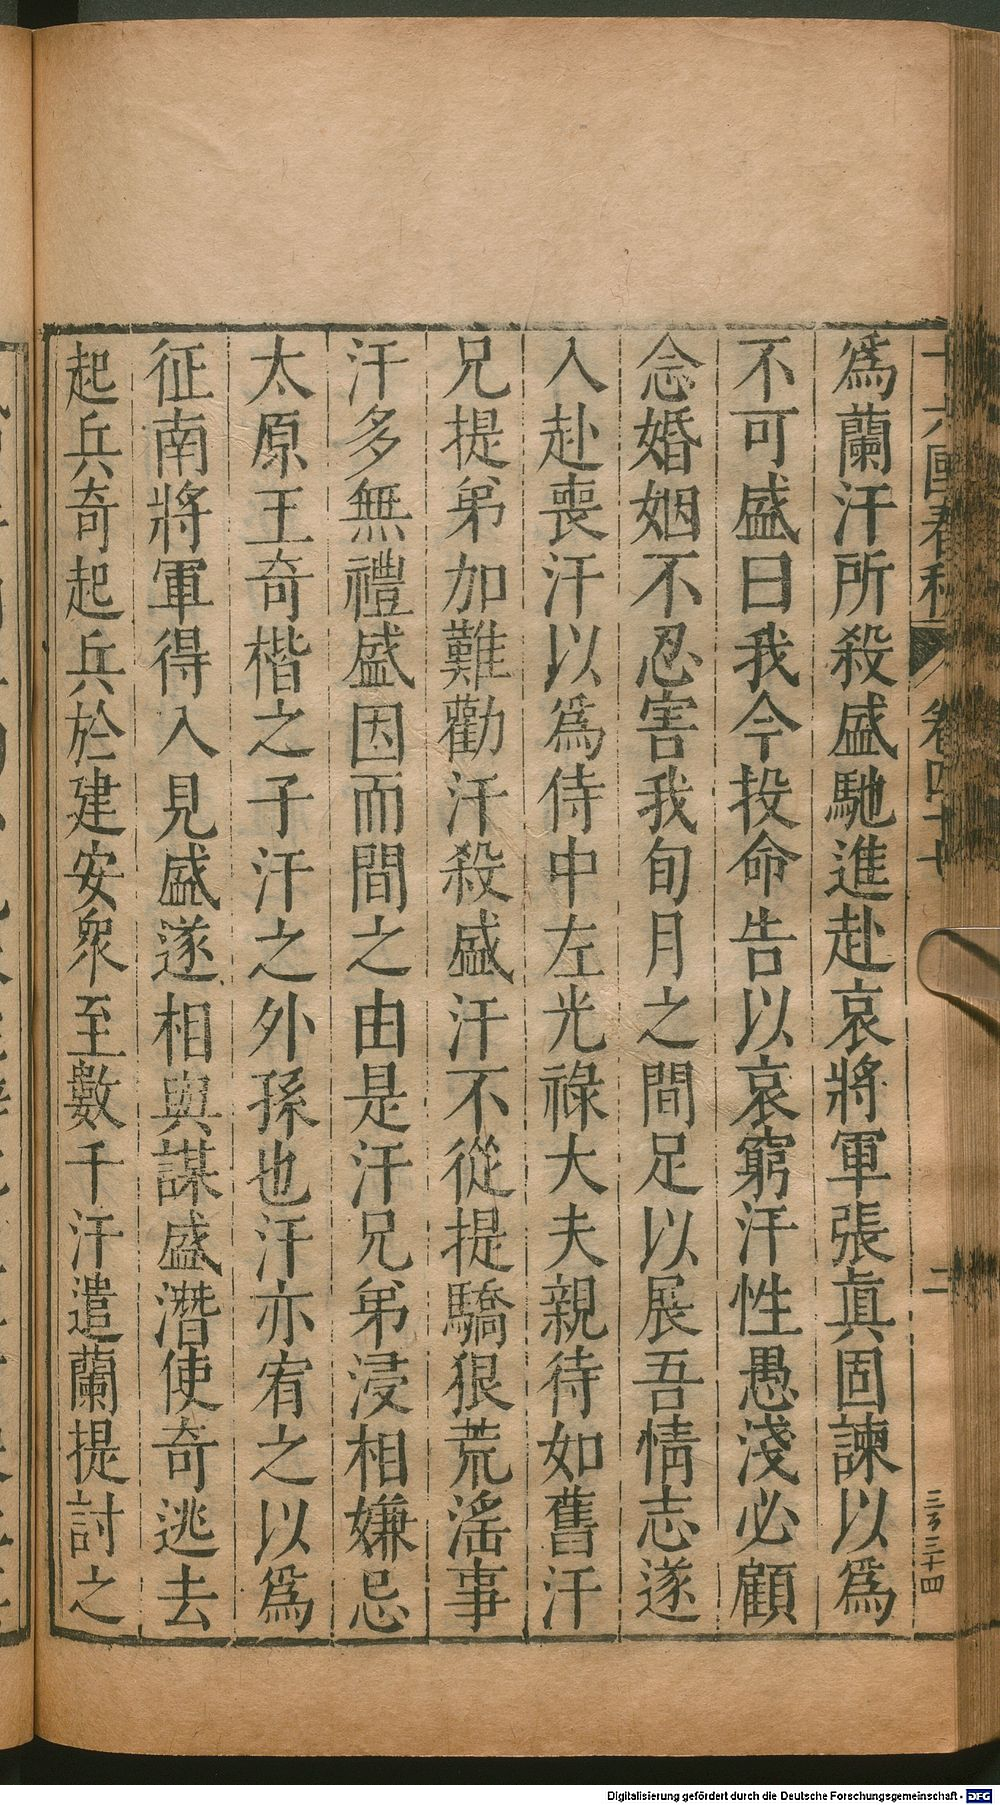 十六國春秋 卷四十七 二 三百三十四
爲蘭汗所殺盛馳進赴哀將軍張眞固諫以爲
不可盛曰我今投命告以哀窮汗性愚淺必顧
念婚姻不忍害我旬月之間足以展吾情志遂
入赴喪汗以爲侍中左光祿大夫親待如舊汗
兄提弟加難勸汗殺盛汗不從提驕狠荒淫事
汗多無禮盛因而間之由是汗兄弟浸相嫌忌
太原王奇楷之子汗之外孫也汗亦宥之以爲
征南將軍得入見盛遂相與謀盛潛使奇逃去
起兵奇起兵於建安衆至數千汗遣蘭提討之
Digitalisierung gefördert durch die Deutsche Forschungsgemeinschaft - DFG